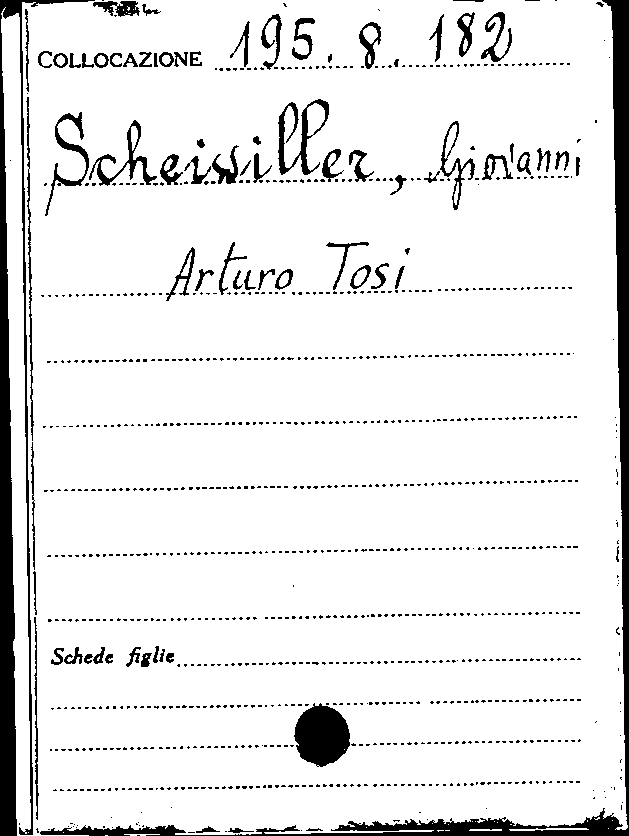 COLLOCAZIONE 195.8.182
Scheiwiller, Giovanni
Arturo Tosi
Schede figlie